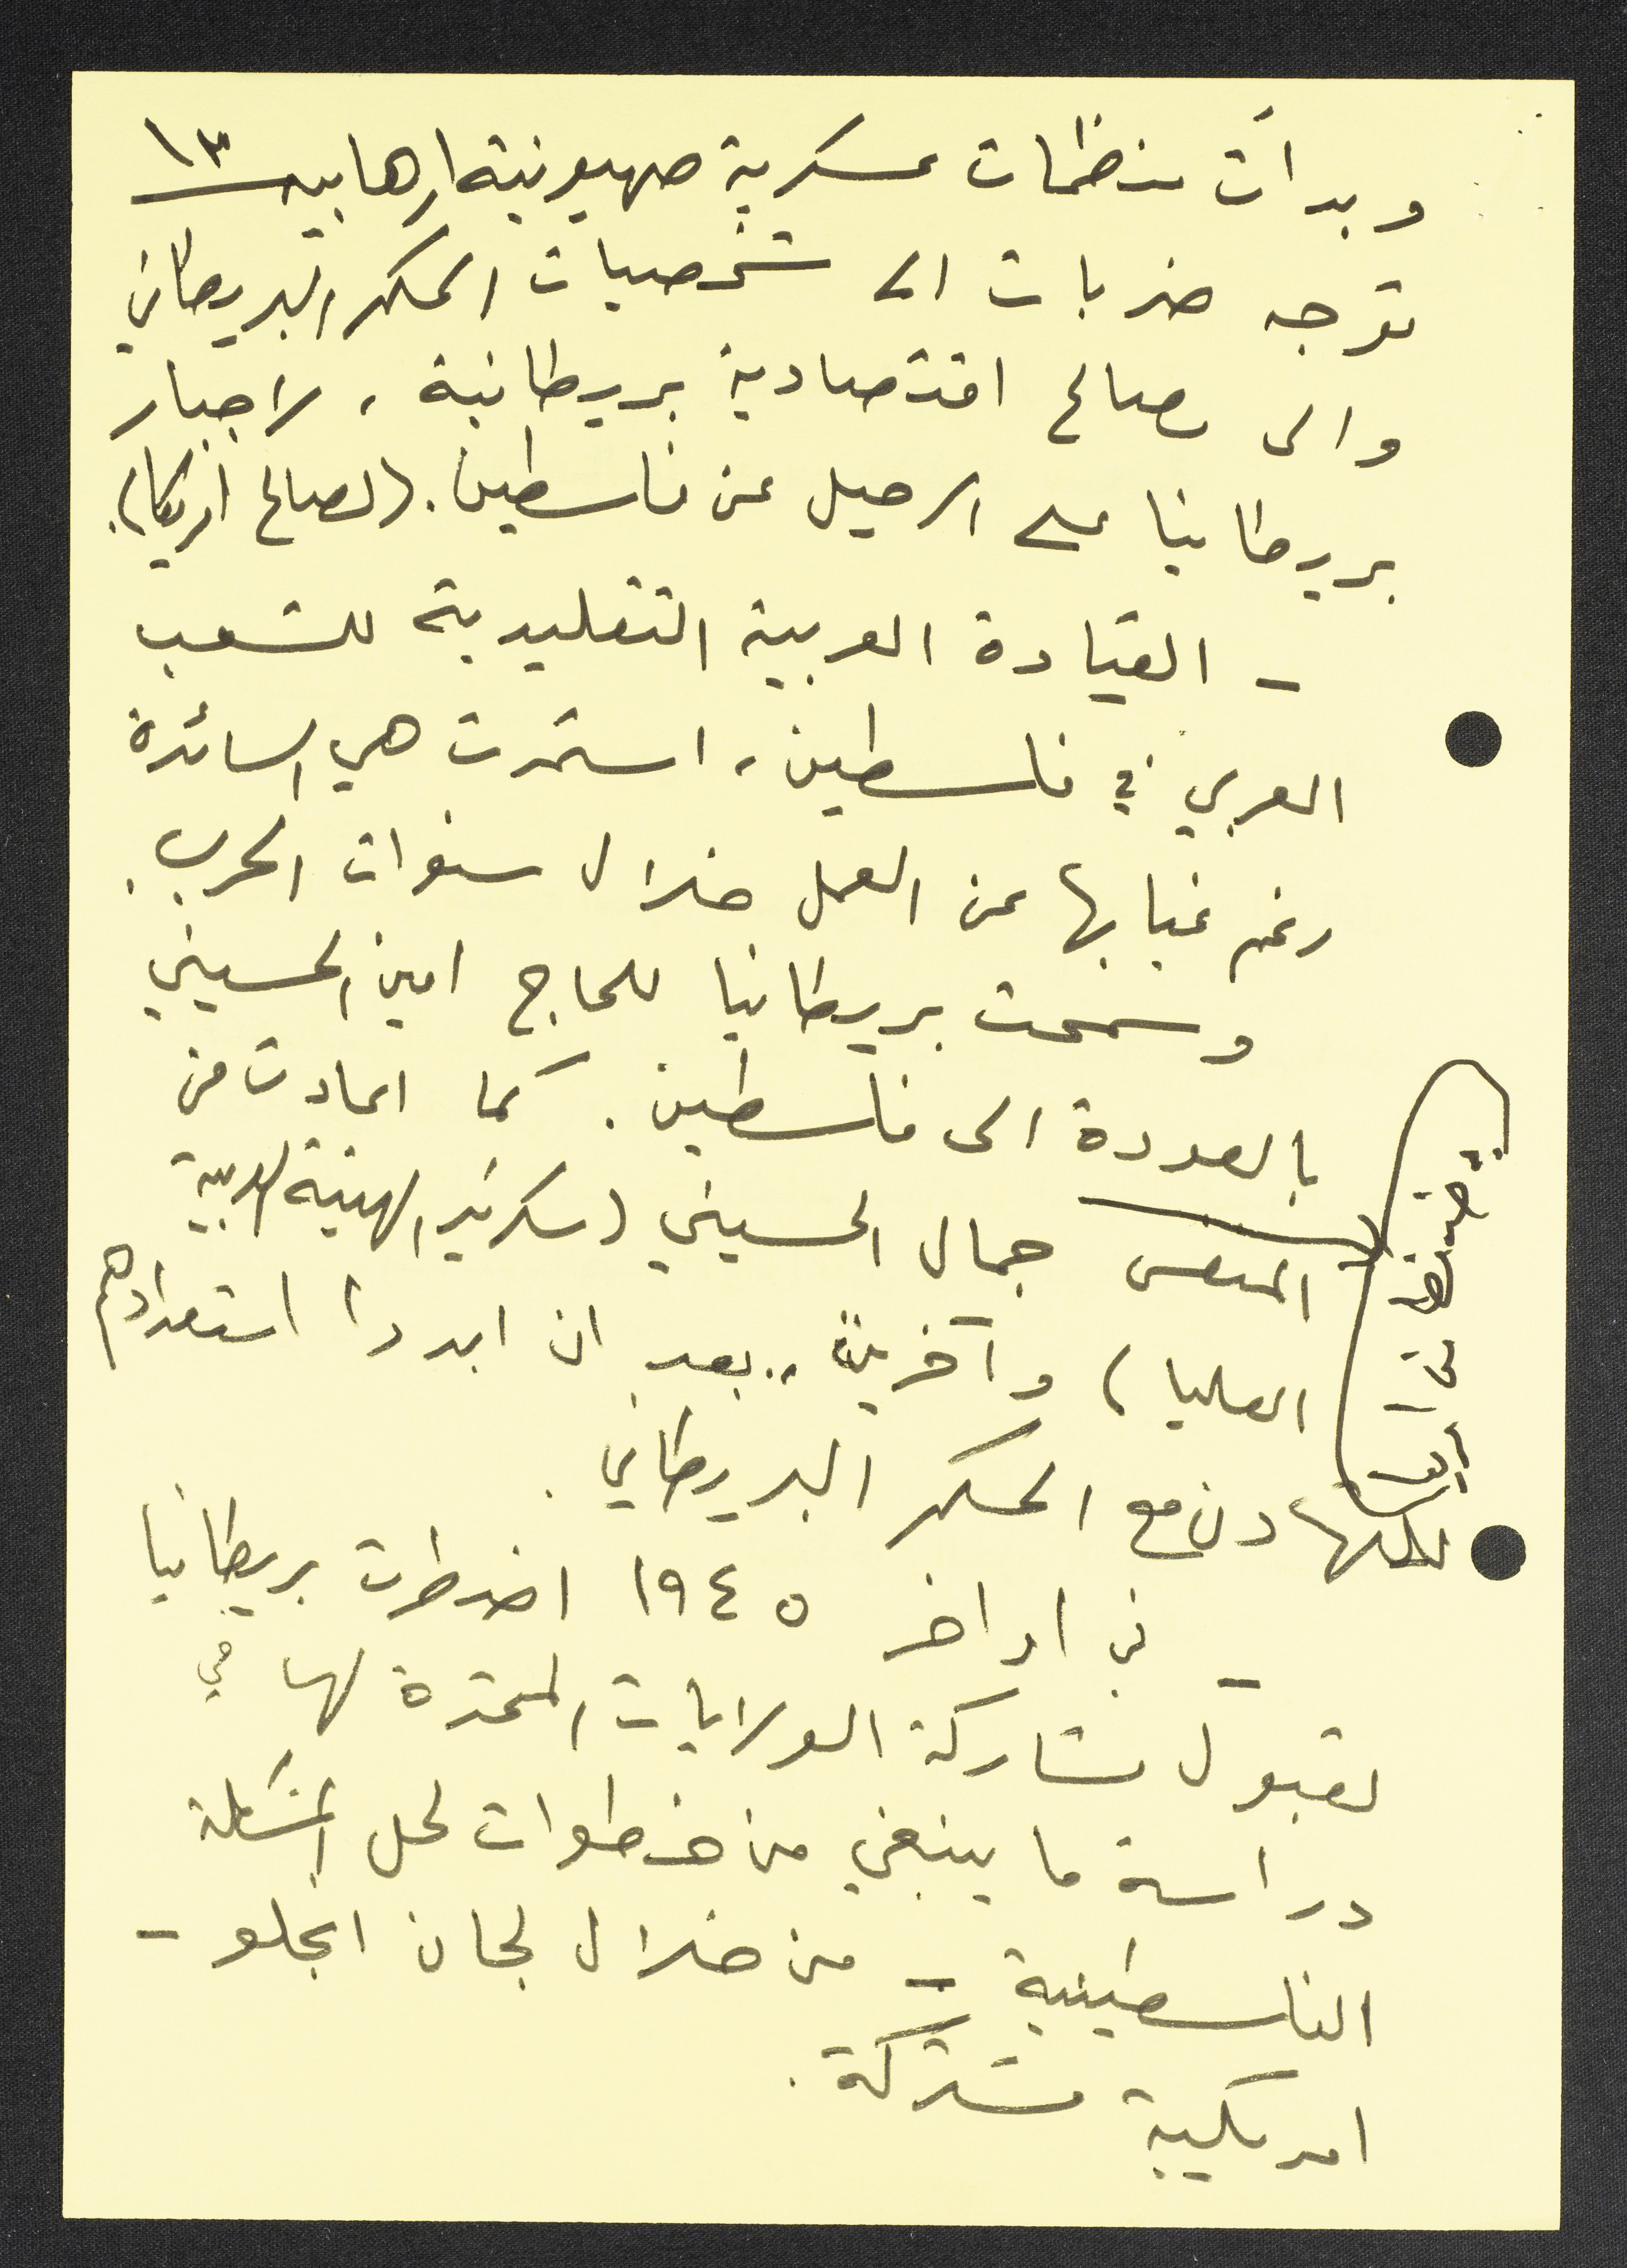 ١٣
وبدأت منظمات عسكرية صهيونية ارهابيه
توجه ضربات الى شخصيات الحكم البريطاني
والى مصالح اقتصادية بريطانية، لاجبار
بريطانيا على الرحيل عن فلسطين. (لصالح امريكا).
- القيادة العربية التقليدية للشعب
العربي في فلسطين، استمرت هي السائدة
رغم غيابها عن العمل خلال سنوات الحرب.
وسمحت بريطانيا للحاج امين الحسيني
بالعودة الى فلسطين. كما اعادت من
المنفى جمال الحسيني (سكرتير الهيئة العربية
العليا) وآخرين.. بعد ان ابدوا استعدادهم
للتهادن مع الحكم البريطاني.
- في اواخر ١٩٤٥ اضطرت بريطانيا
لقبول مشاركة الولايات المتحدة لها في
دراسة ما ينبغي من خطوات لحل المشكلة
الفلسطينية - من خلال لجان انجلو -
امريكية مشتركة.